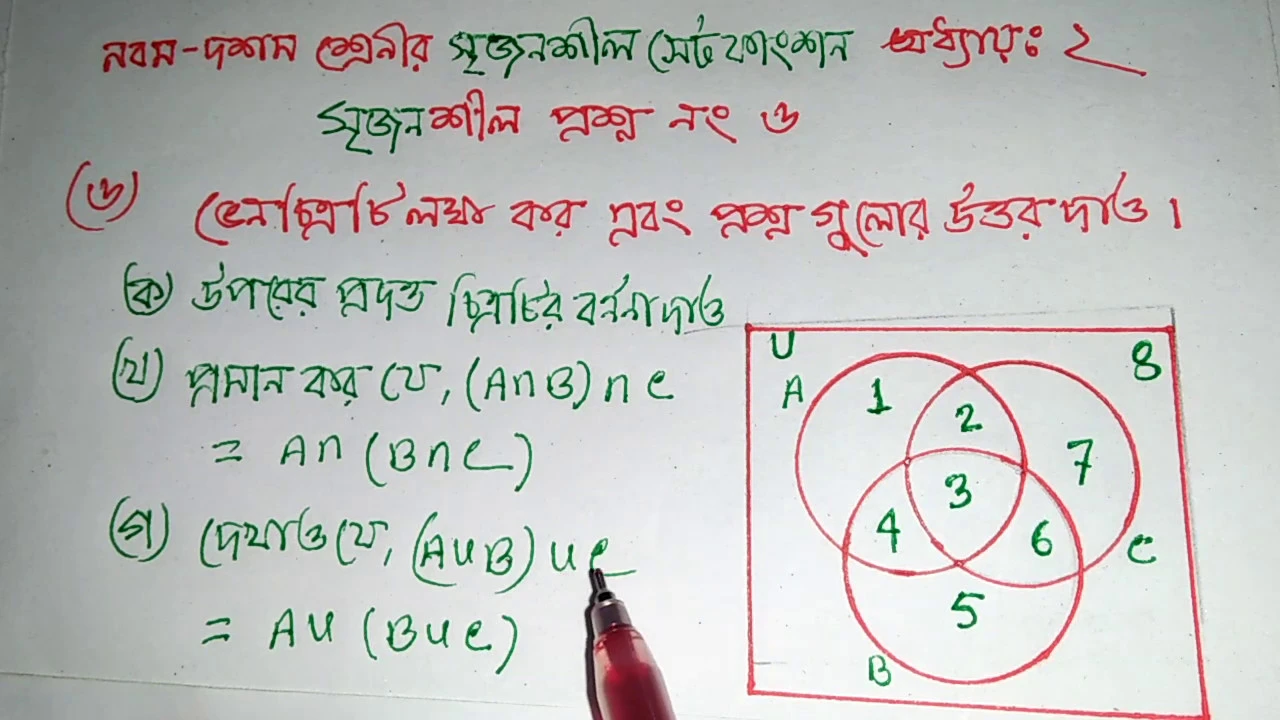 নবম-দশম শ্রেনীর সৃজনশীল সেট ফাংশন অধ্যায়ঃ ২
সৃজনশীল প্রশ্ন নং ৬
(৬) ভেনচিত্রটি লখ্য কর এবং প্রশ্ন গুলোর উত্তর দাও।
(ক) উপরের প্রদত্ত চিত্রটির বর্ননা দাও
(খ) প্রমান কর যে, (A∩B)∩C
= A∩(B∩C)
(গ) দেখাও যে, (A∪B)∪C
= A∪(B∪C)
U
8
A
1
2
7
3
4
6
C
5
B